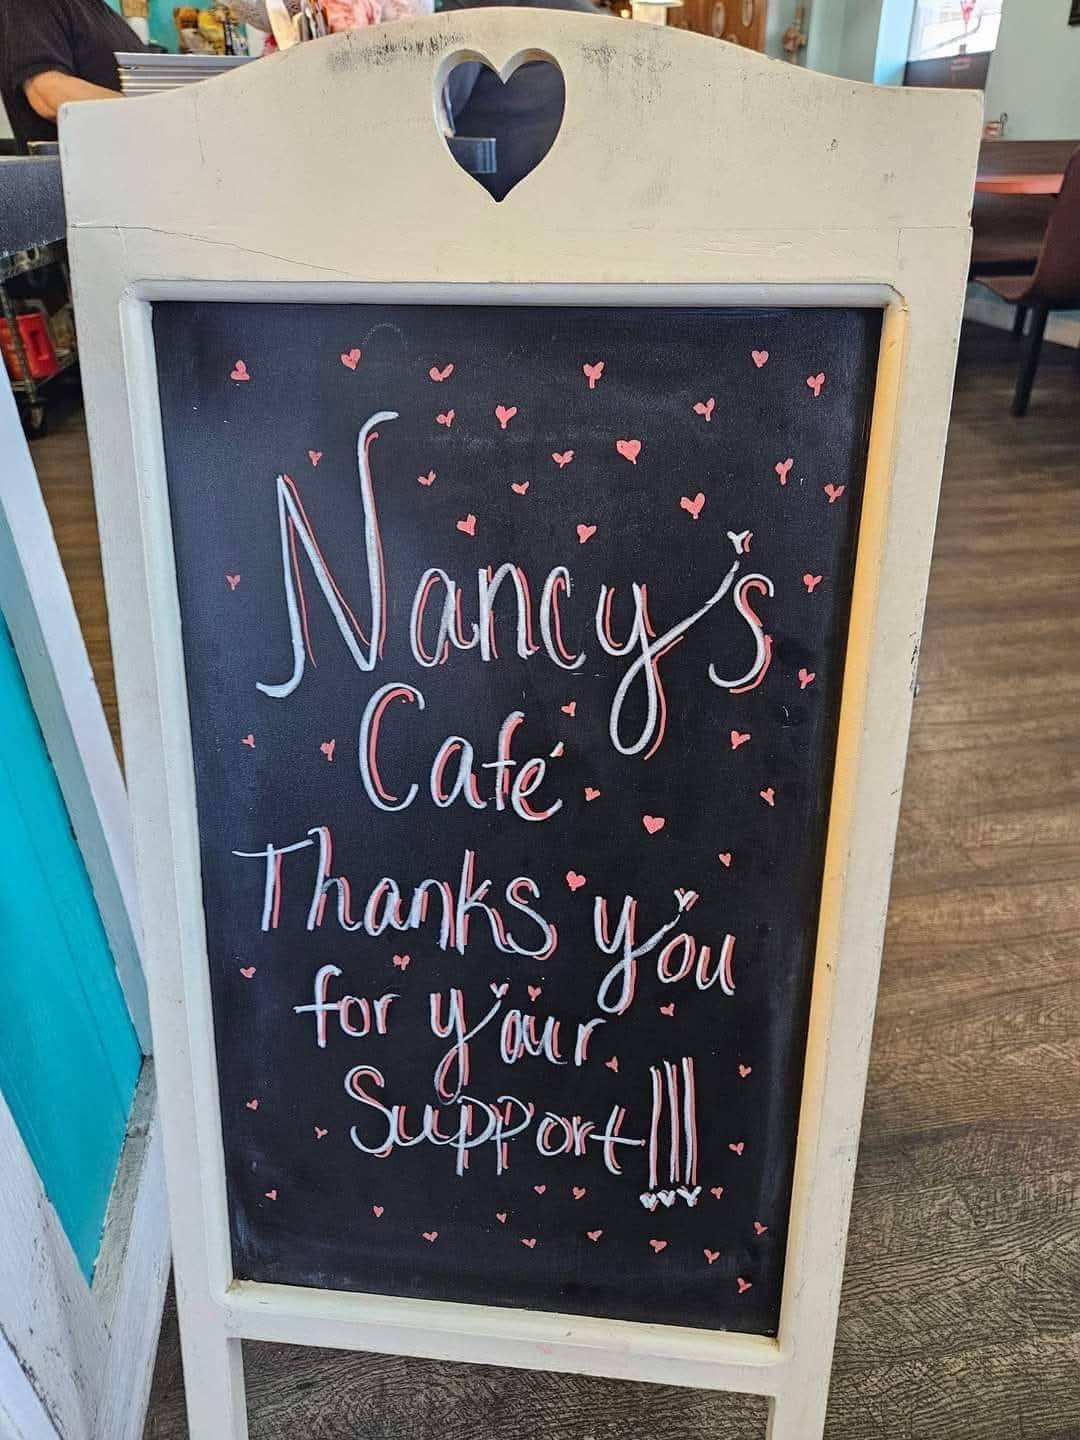 Nancy's
Café
Thanks you
for your
Support!!!